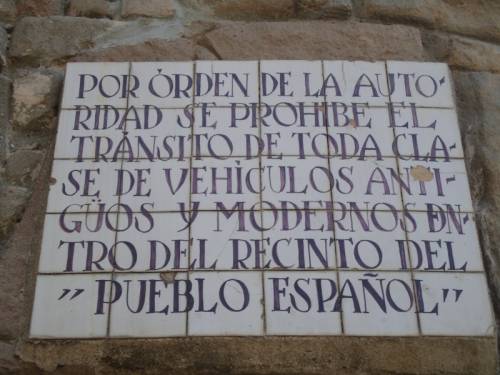 POR ÓRDEN DE LA AUTO-
RIDAD SE PROHIBE EL
TRÁNSITO DE TODA CLA-
SE DE VEHÍCULOS ANTI-
GÜOS Y MODERNOS DEN-
TRO DEL RECINTO DEL
"PUEBLO ESPAÑOL"